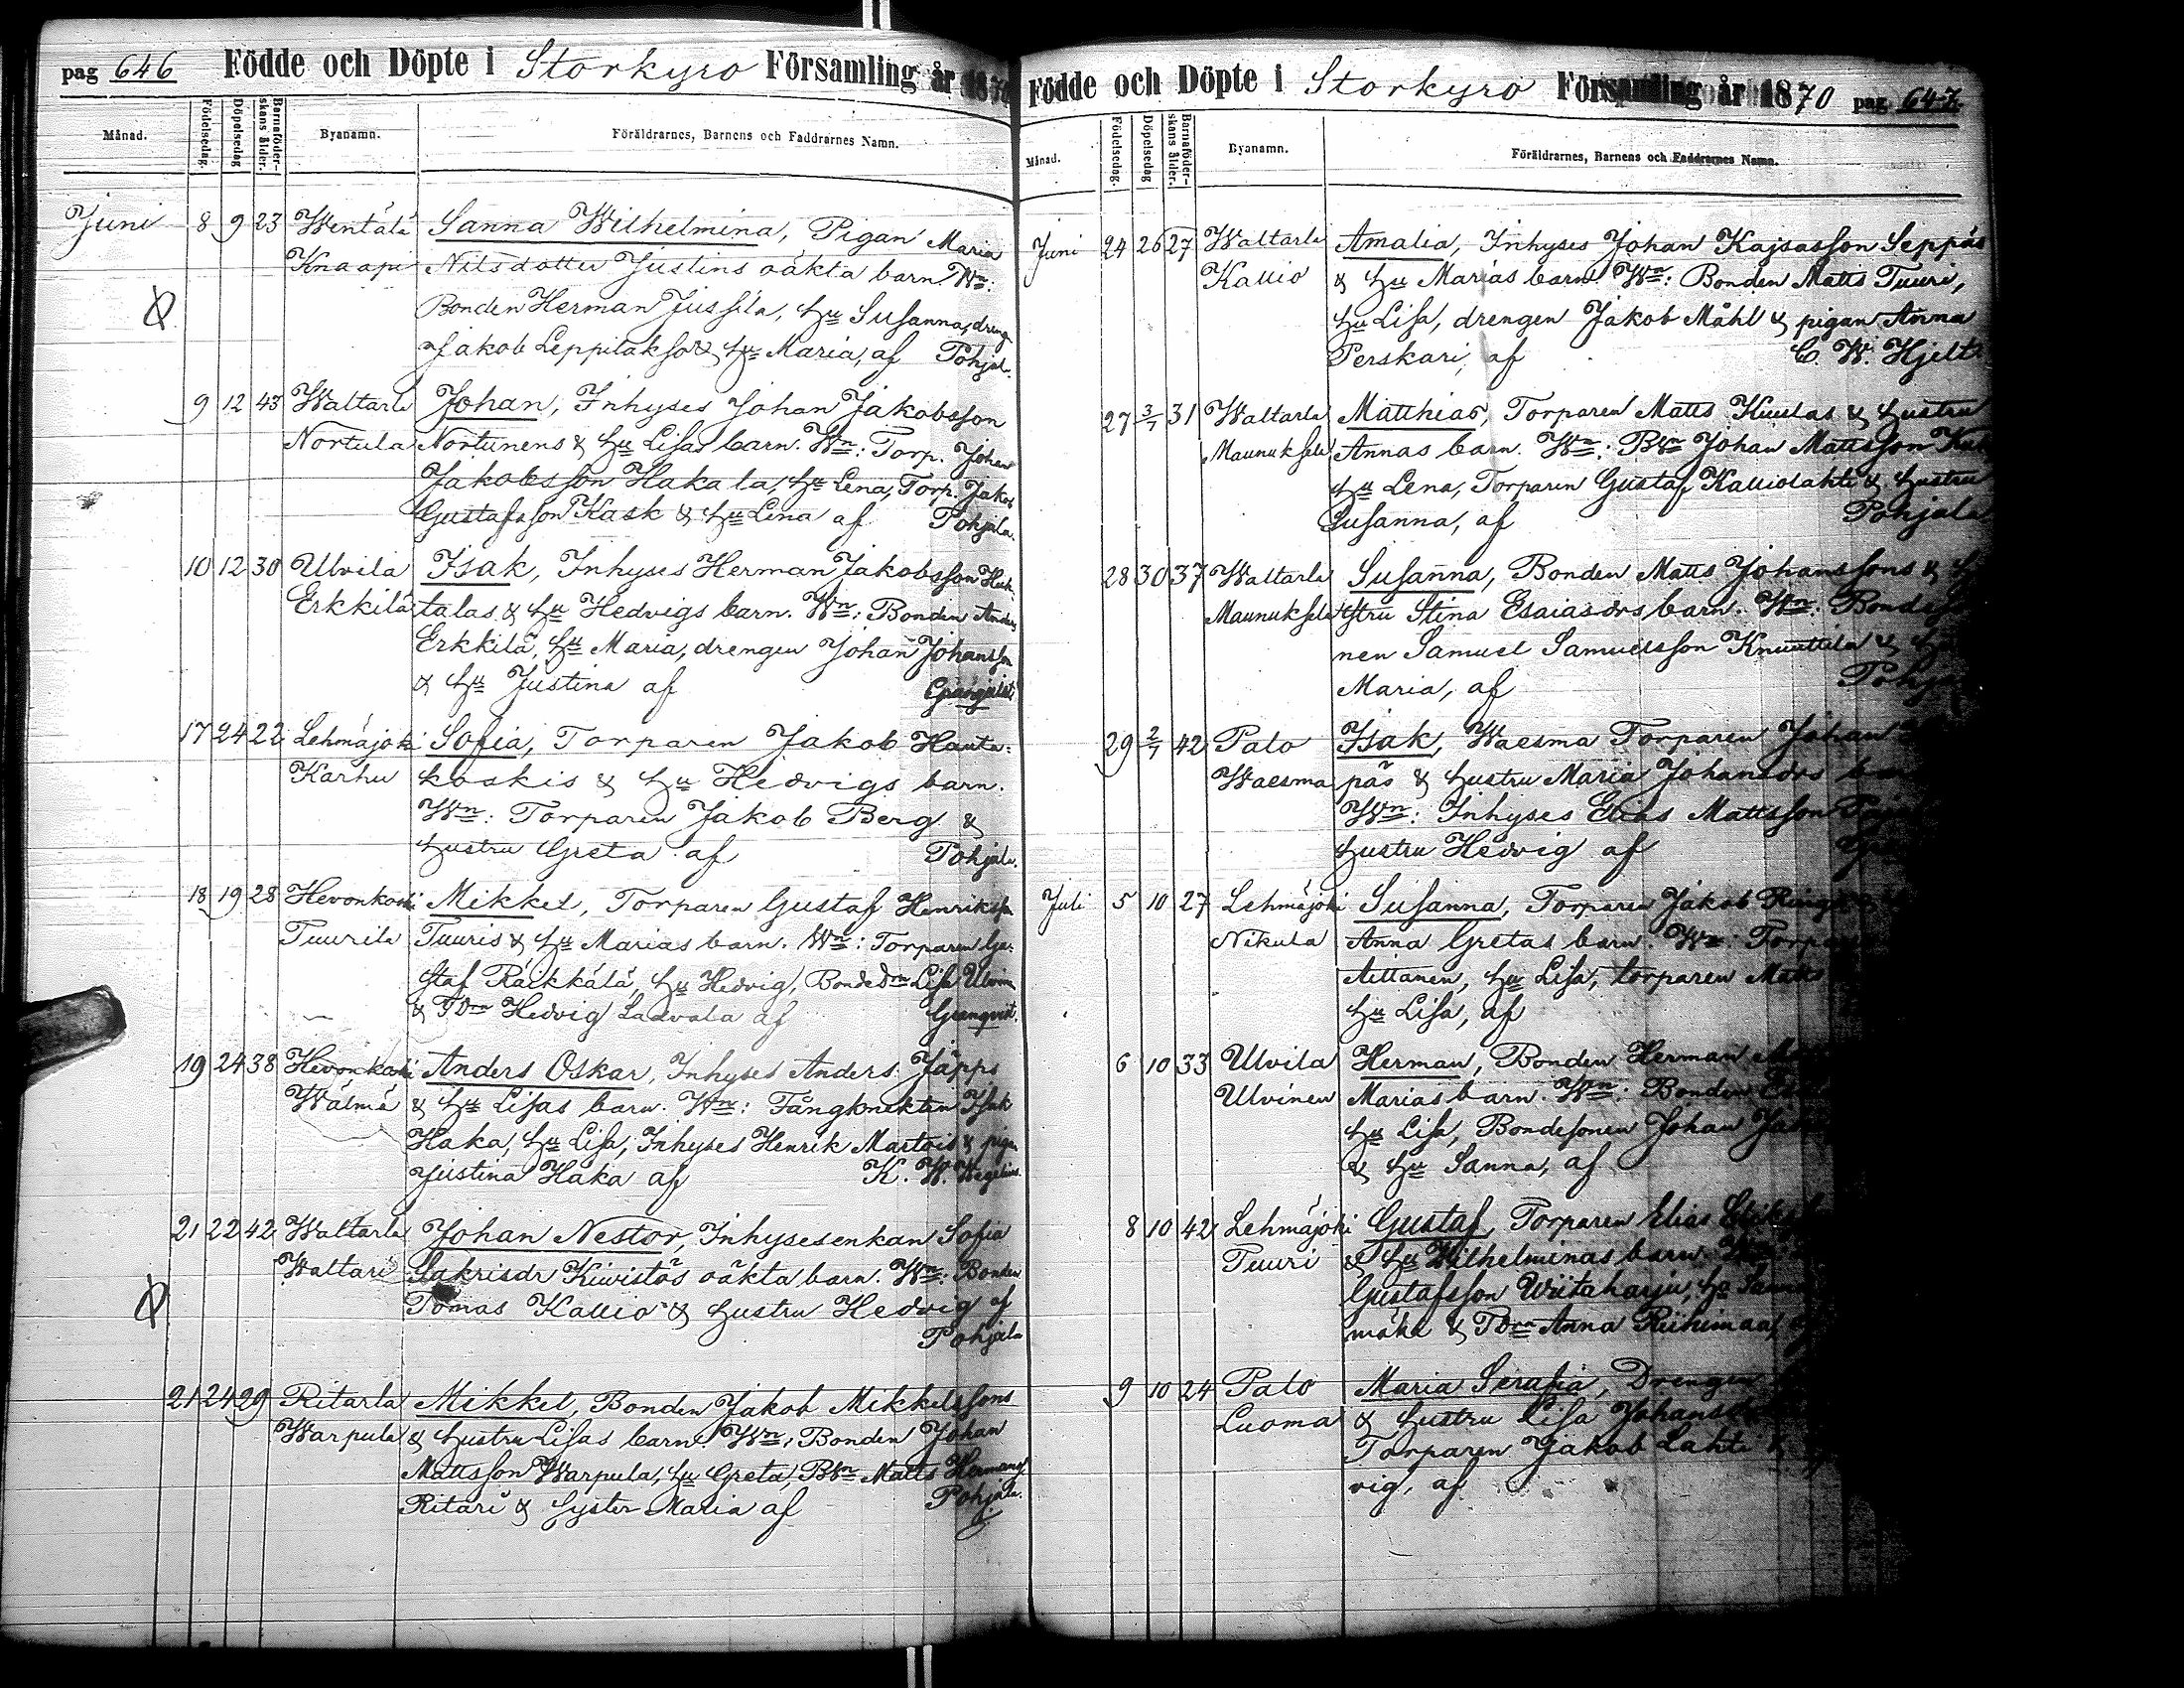 pag 646 Födde och Döpte i Storkyro Församling år 1870
Månad. Födelsedag. Döpelsedag Barnaföder-skans ålder. Byanamn. Föräldrarnes, Barnens och Faddrarnes Namn.
Juni 8 9 23 Wentälä Sanna Wilhelmina, Pigan Maria
Knaapi Nilsdotter Justins oäkta barn. Wn:
Bonden Herman Jussila, Hu Susanna, dreng
Jakob Leppilakso & Hu Maria, af Pohjal.
9 12 43 Waltarla Johan, Inhyses Johan Jakobsson
Nortula Nortunens & Hu Lisas barn. Wn: Torp. Johan
Jakobsson Hakala, Hu Lena, Torp. Jakob
Gustafsson Kask & Hu Lena af Pohjala.
10 12 30 Ulvila Isak, Inhyses Herman Jakobsson
Erkkilä talas & Hu Hedvigs barn. Wn: Bonden Anders
Erkkilä, Hu Maria, drengen Johan Johansson
& Hu Justina af Granqvist
17 24 22 Lehmäjoki Sofia, Torparen Jakob Hauta-
Karhu koskis & Hu Hedvigs barn.
Wn: Torparen Jakob Berg &
hustru Greta af Pohjala.
18 19 28 Hevonkoski Mikkel, Torparen Gustaf Henriksson
Tuurila Tuuris & Hu Marias barn. Wn: Torparen Gu-
staf Raikkälä, Hu Hedvig, Bondedn Lisa Ulvin
& Tdn Hedvig Ladvala af Granqvist.
19 24 38 Hevonkoski Anders Oskar, Inhyses Anders Jäpps
Wälmä & Hu Lisas barn. Wn: Fångknekten Isak
Haka, Hu Lisa, Inhyses Henrik Martois & pigan
Justina Haka af K. W. Wegelius.
21 22 42 Waltarla Johan Nestor, Inhysesenkan Sofia
Waltari Sakrisdr Kiwistös oäkta barn. Wn: Bonden
Tomas Kallio & hustru Hedvig af
Pohjala
21 24 29 Ritarla Mikkel, Bonden Jakob Mikkelssons
Warpula & hustru Lisas barn. Wn: Bonden Johan
Mattsson Warpula, Hu Greta, Bdn Matts Hermans.
Ritari & syster Maria af Pohjala.
Födde och Döpte i Storkyro Församling år 1870 pag 647
Månad. Födelsedag. Döpelsedag Barnaföder-skans ålder. Byanamn. Föräldrarnes, Barnens och Faddrarnes Namn.
Juni 24 26 27 Waltarla Amalia, Inhyses Johan Kajsasson Seppäs
Kallio & Hu Marias barn. Wn: Bonden Matts Tuuri,
Hu Lisa, drengen Jakob Mähl & pigan Anna
Perskari, af C. W. Hjelt
27 3/7 31 Waltarla Matthias, Torparen Matts Kuulas & hustru
Maunuksela Annas barn. Wn: Bdn Johan Mattsson
Hu Lena, Torparen Gustaf Kalliolahti & hustru
Susanna, af Pohjala
28 30 37 Waltarla Susanna, Bonden Matts Johanssons &
Maunuksela stru Stina Esaiasdrs barn. Wn:
nen Samuel Samuelsson Knuuttila &
Maria, af
29 2/7 42 Palo Isak, Waesma Torparen Johan
Waesma päs & hustru Maria Johansdrs
Wn: Inhyses Elias Mattsson
hustru Hedvig af
Juli 5 10 27 Lehmäjoki Susanna, Torparen Jakob
Nikula Anna Gretas barn. Wn:
Aittanen, Hu Lisa, torparen Matts
Hu Lisa, af
6 10 33 Ulvila Herman, Bonden Herman
Ulvinen Marias barn. Wn: Bonden
Hu Lisa, Bondesonen Johan
& Hu Sanna, af
8 10 42 Lehmäjoki Gustaf, Torparen Elias
Tuuri & Hu Wilhelminas barn.
Gustafsson Wiitaharju, Hu
mäki & Tdrn Anna Riihimaa,
9 10 24 Palo Maria Serafia, Drengen
Luoma & hustru Lisa
Torparen Jakob Lahti
vig, af